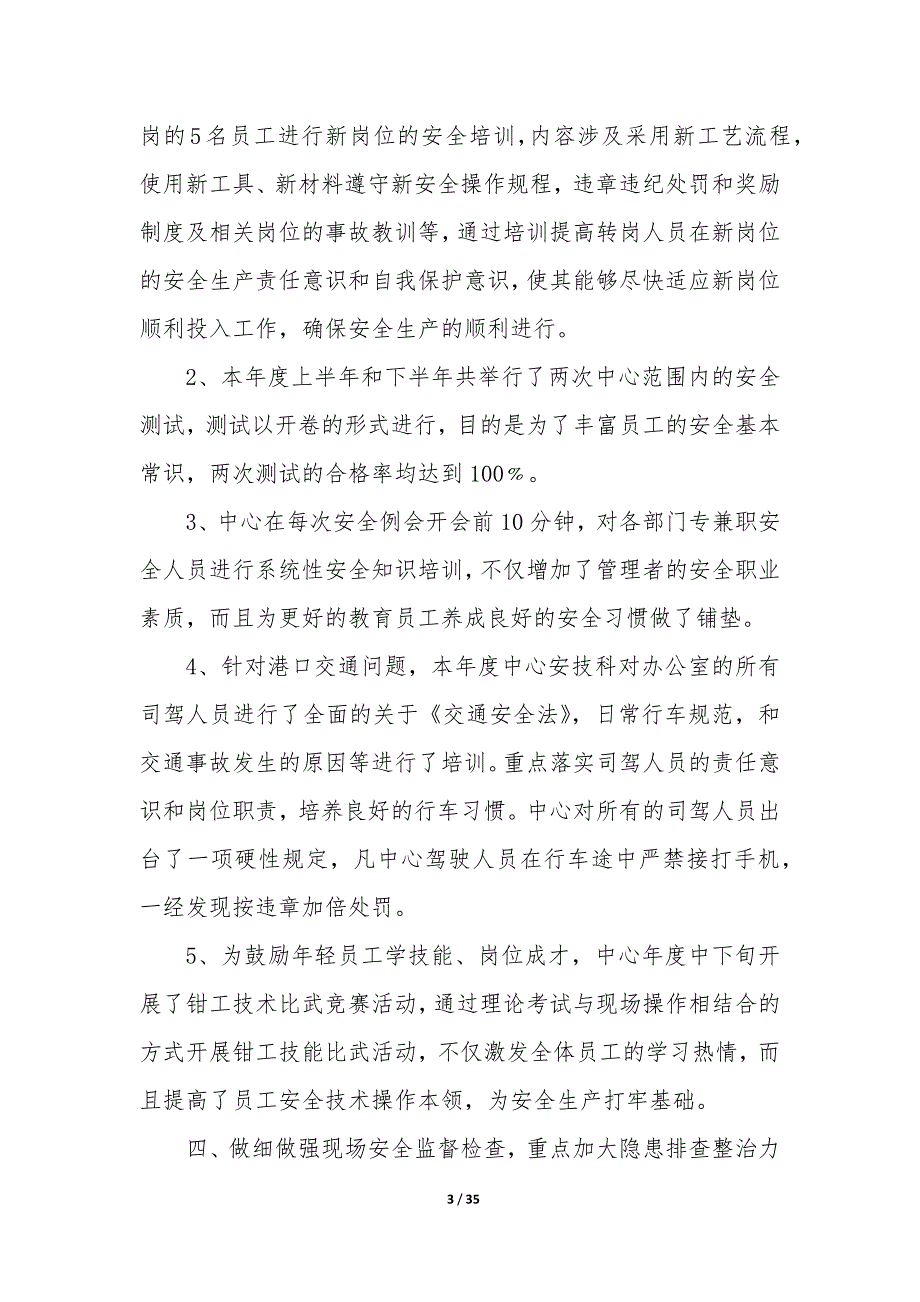 岗的5名员工进行新岗位的安全培训，内容涉及采用新工艺流程，
使用新工具、新材料遵守新安全操作规程，违章违纪处罚和奖励
制度及相关岗位的事故教训等，通过培训提高转岗人员在新岗位
的安全生产责任意识和自我保护意识，使其能够尽快适应新岗位
顺利投入工作，确保安全生产的顺利进行。
2、本年度上半年和下半年共举行了两次中心范围内的安全
测试，测试以开卷的形式进行，目的是为了丰富员工的安全基本
常识，两次测试的合格率均达到100％。
3、中心在每次安全例会开会前10分钟，对各部门专兼职安
全人员进行系统性安全知识培训，不仅增加了管理者的安全职业
素质，而且为更好的教育员工养成良好的安全习惯做了铺垫。
4、针对港口交通问题，本年度中心安技科对办公室的所有
司驾人员进行了全面的关于《交通安全法》，日常行车规范，和
交通事故发生的原因等进行了培训。重点落实司驾人员的责任意
识和岗位职责，培养良好的行车习惯。中心对所有的司驾人员出
台了一项硬性规定，凡中心驾驶人员在行车途中严禁接打手机，
一经发现按违章加倍处罚。
5、为鼓励年轻员工学技能、岗位成才，中心年度中下旬开
展了钳工技术比武竞赛活动，通过理论考试与现场操作相结合的
方式开展钳工技能比武活动，不仅激发全体员工的学习热情，而
且提高了员工安全技术操作本领，为安全生产打牢基础。
四、做细做强现场安全监督检查，重点加大隐患排查整治力
3 / 35